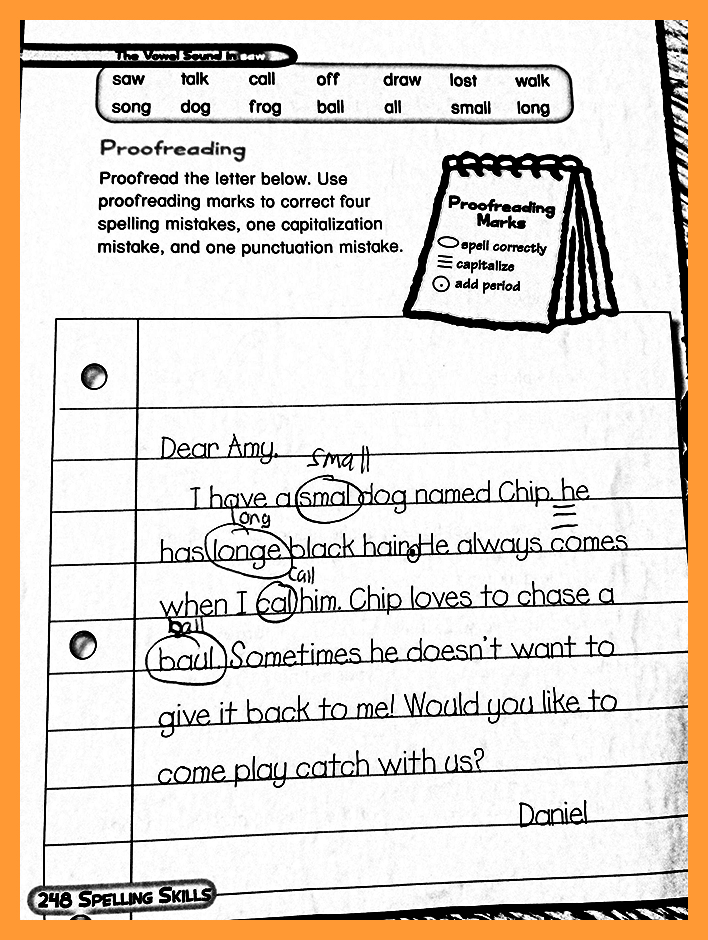 The Vowel Sound in saw
saw talk call off draw lost walk
song dog frog ball all small long
Proofreading
Proofread the letter below. Use
proofreading marks to correct four
spelling mistakes, one capitalization
mistake, and one punctuation mistake.
Proofreading
Marks
spell correctly
capitalize
add period
Dear Amy,
small
I have a smal dog named Chip. he
long
has longe black hair. He always comes
call
when I cal him. Chip loves to chase a
ball
baul. Sometimes he doesn't want to
give it back to me! Would you like to
come play catch with us?
Daniel
248 SPELLING SKILLS